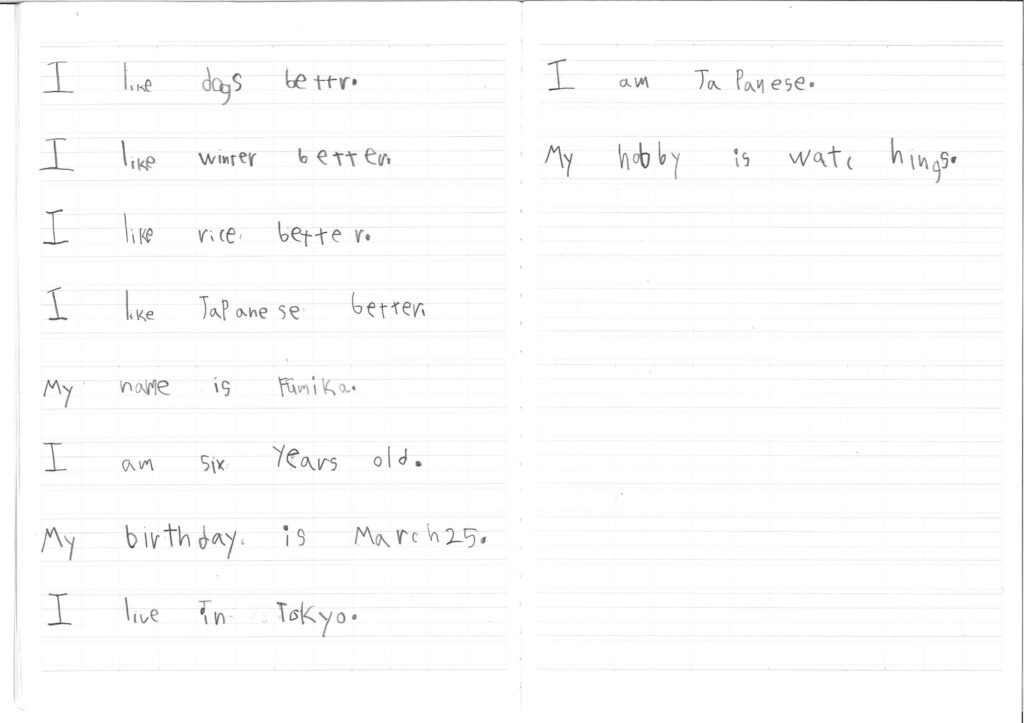 I like dogs bettr.
I like winter better.
I like rice. better.
I like Japanese better.
My name is Fumika.
I am six years old.
My birthday. is March25.
I live in Tokyo.
I am Ja Panese.
My hobby is watc hings.